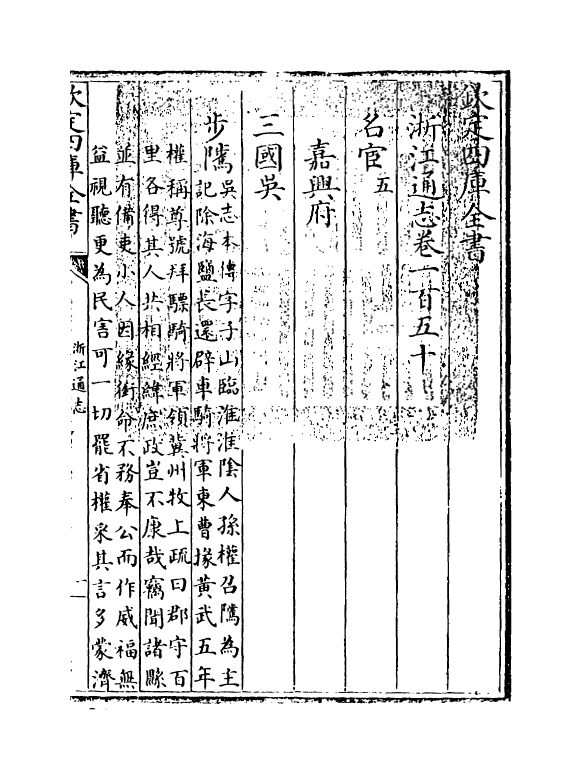 欽定四庫全書
浙江通志卷一百五十
名宦五
嘉興府
三國吳
步隲吳志本傳字子山臨淮淮陰人孫權召隲為主
記除海鹽長還辟車騎將軍東曹掾黃武五年
權稱尊號拜驃騎將軍領冀州牧上疏曰郡守百
里各得其人共相經緯庶政豈不康哉竊聞諸縣
並有備吏小人因緣銜命不務奉公而作威福無
益視聽更為民害可一切罷省權采其言多蒙濟
欽定四庫全書
浙江通志
一